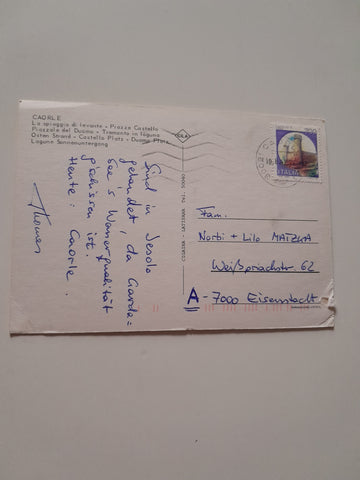 CAORLE
La spiaggia di levante - Piazza Castello
Piazzale del Duomo - Tramonto in laguna
Osten Strand - Castello Platz - Duomo Platz
Lagune Sonnenuntergang
Sind in Jesolo
gelandet, da Garda=
see's Wasserqualität
gschissen ist.
Heute: Caorle.
Thomas
ITALIA
Fam.
Norbi + Lilo MATZKA
Weißpriachstr. 62
A - 7000 Eisenstadt